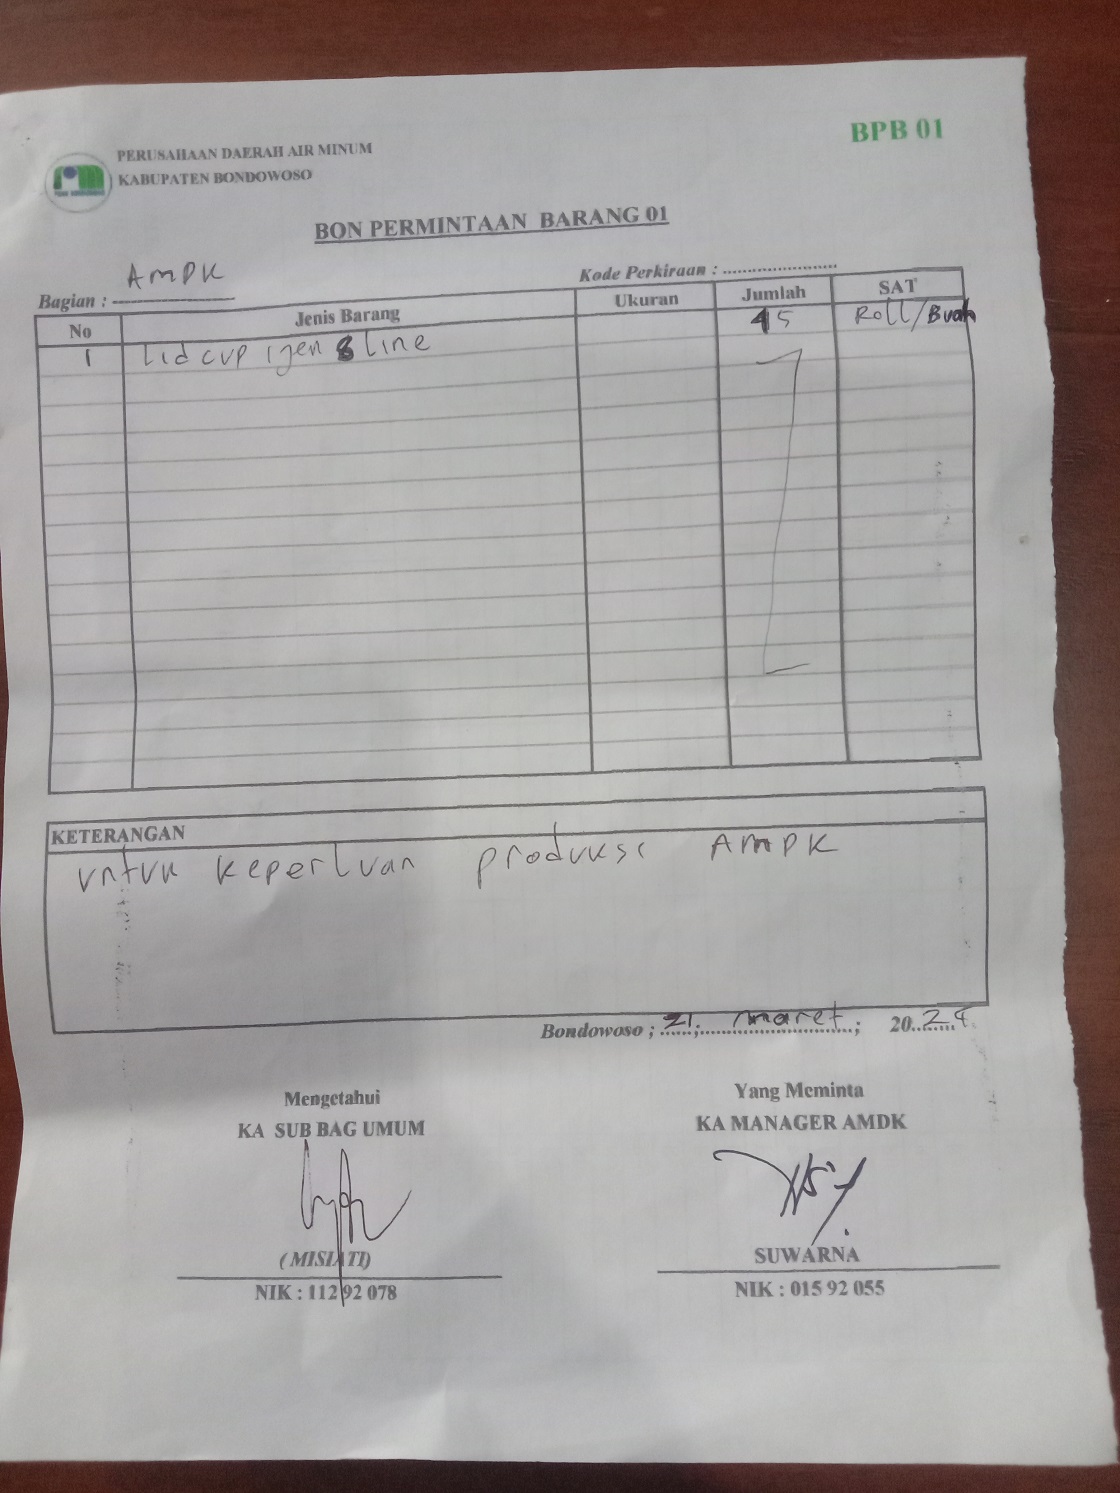 BPB 01
PERUSAHAAN DAERAH AIR MINUM
KABUPATEN BONDOWOSO
BON PERMINTAAN BARANG 01
Bagian : AMDK
Kode Perkiraan : ........................
No Jenis Barang Ukuran Jumlah SAT
1 Lid cup ijen 8 line 45 Roll/Buah
KETERANGAN
untuk keperluan produksi AMDK
Bondowoso ; 21, maret ; 2024
Mengetahui
KA SUB BAG UMUM
(MISIATI)
NIK : 112 92 078
Yang Meminta
KA MANAGER AMDK
SUWARNA
NIK : 015 92 055